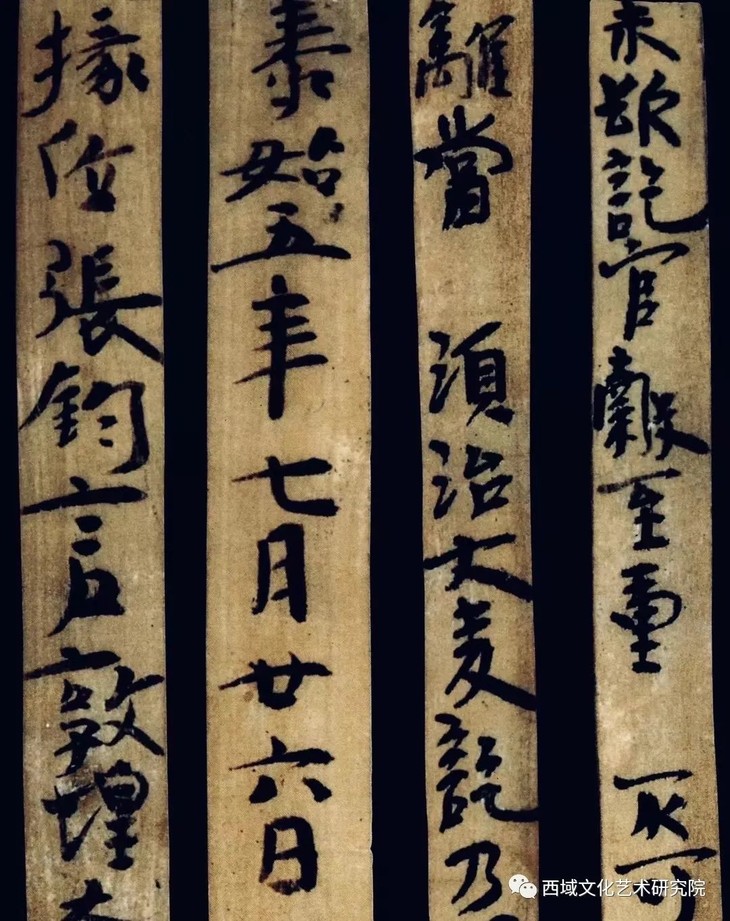 未訖官穀至重 不可
離當 須治大麥訖乃
泰始五年七月廿六日
掾位張鈞言敦煌
西域文化艺术研究院